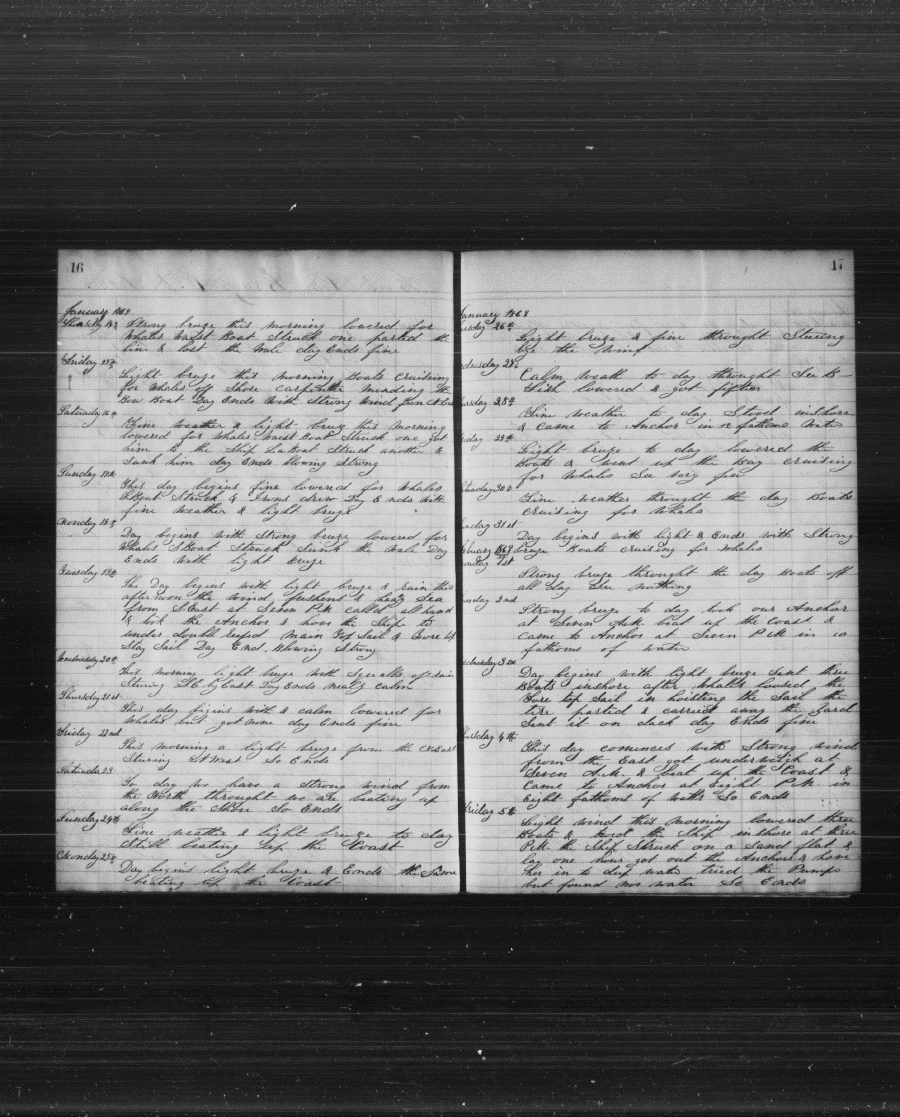 16
January 1869
Thursday 14th Strong breze this morning lowered for
Whales Waist Boat Struck one parted the
line & lost the Whale day Ends fine
Friday 15th
Light breze this morning Boats cruising
for Whales off Shore carpenter mending the
Bow Boat Day Ends With Strong Wind from N East
Saturday 16th
Fine weather & light breze this morning
lowered for Whales Waist Boat Struck one got
him to the Ship La Boat Struck another &
Sunk him day Ends blowing Strong
Sunday 17th
This day begins fine lowered for Whales
LBoat Struck & Irons drew Day Ends With
fine weather & light breze
Monday 18th
Day begins With Strong breze lowered for
Whales SBoat Struck Sunk the Whale Day
Ends With light breze
Tuesday 19th
The Day begins with light breze & rain this
afternoon the wind freshend & heavy Sea
from S.East at Seven P.M. called all hand
& took the Anchor & hove the Ship to
under double reefed Main Top Sail & Fore
Stay Sail Day End blowing Strong
Wednesday 20th
This morning light breze with Squalls of rain
Stering SE by East Day Ends nearly calm
Thursday 21st
This day begins with a calm lowered for
Whales but got none day Ends fine
Friday 22nd
This morning a light breze from the N East
Stering N West So Ends
Saturda 23
To day we have a Strong wind from
the North throught we are beating up
along the Shore So Ends
Sunday 24th
Fine weather & light breeze to day
Still beating up the Coast
Monday 25th
Day begins light breze & Ends the Same
beating up the Coast
17
January 1869
uesday 26th
Light breze & fine throught Stering
bye the Wind
ednesday 27th
Calm weath to day throught Su B
Sith lowered & got
ursday 28th
Fine weather to day Stood inshore
& came to Anchor in 12 fathoms Water
iday 29th
Light breze to day lowered the
Boats & went up the Bay cruising
for Whales See very few
aturday 30th
Fine weather throught the day Boats
cruising for Whales
unday 31st
Day begins with light & Ends with Strong
February 1869 breze Boats cruising for Whales
onday 1st
Strong breze throught the day Boats off
all day See nothing
uesday 2nd
Strong breze to day took our Anchor
at Seven A.M. beat up the Coast &
came to Anchor at Seven P.M. in 10
fathoms of water
ednesday 3rd
Day begins with light breze Sent three
Boats inshore after Whales loosed the
Fore top Sail in hoisting the Sail the
tire parted & carried away the Yard
Sent it on deck day Ends fine
ursday 4th
This day comences with Strong wind
from the East got underweigh at
Seven A.M. & beat up the Coast &
Came to Anchor at Eight P.M. in
Eight fathoms of water So Ends
Friday 5th
Light wind this morning lowered three
Boats & the Ship inshore at three
P.M. the Ship Struck on a Sand flat &
lay one hour got out the Anchors & hove
her in to deep water tried the Pumps
but found nor water So Ends